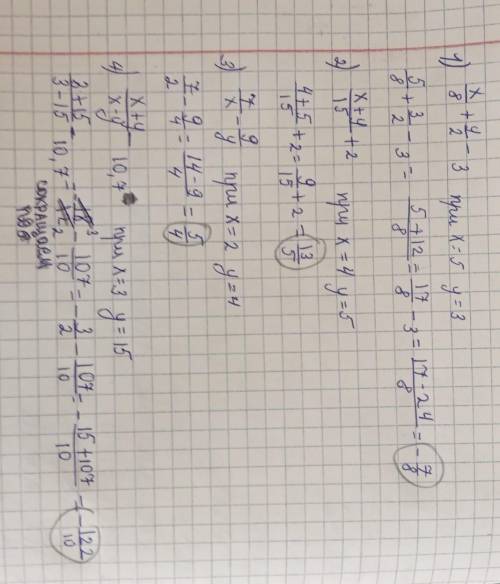 1) x/8 + y/2 - 3 при x=5 y=3
5/8 + 3/2 - 3 = 5+12/8 = 17/8 - 3 = 17-24/8 = -7/8
2) x+y/15 + 2 при x=4 y=5
4+5/15 + 2 = 9/15 + 2 = 13/5
3) 7/x - 9/y при x=2 y=4
7/2 - 9/4 = 14-9/4 = 5/4
4) x+y/x-y - 10,7 при x=3 y=15
3+15/3-15 - 10,7 = -18/12 - 107/10 = -3/2 - 107/10 = -15+107/10 = -122/10
сокращаем